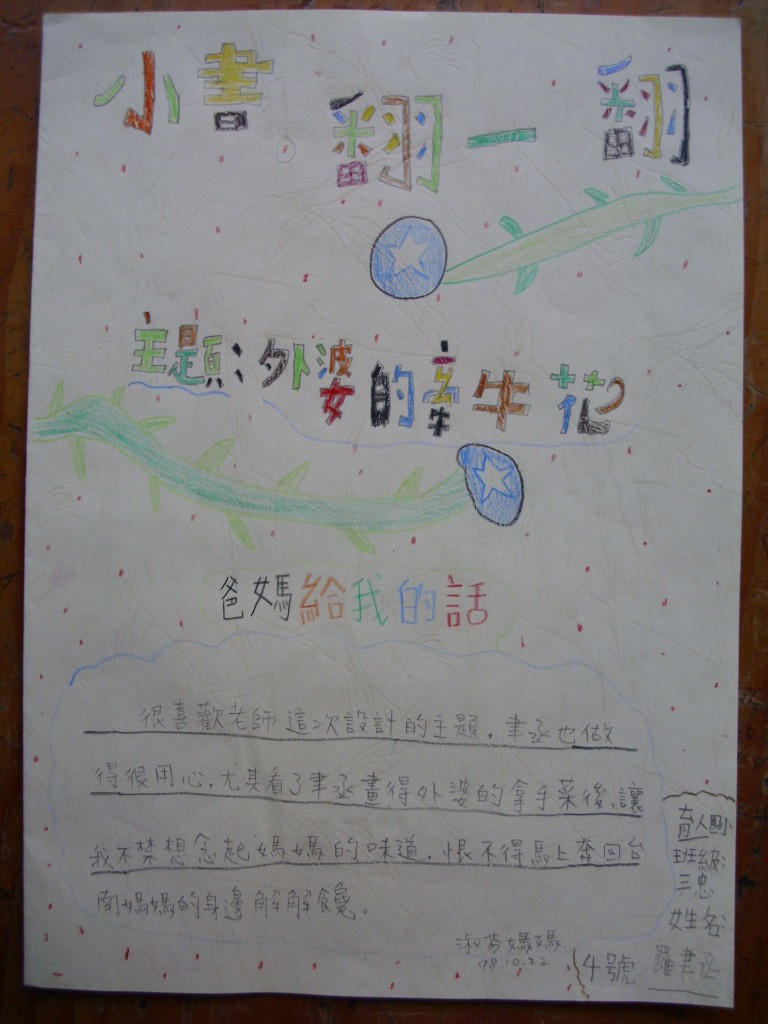 小書翻一翻
主題:外婆的牽牛花
爸媽給我的話
很喜歡老師這次設計的主題,聿丞也做
得很用心,尤其看了聿丞畫得外婆的拿手菜後,讓
我不禁想念起媽媽的味道,恨不得馬上奔回台
南媽媽的身邊解解饞。
淑芬媽媽
98.10.22
育人國小
班級
三忠
姓名
4號 羅聿丞